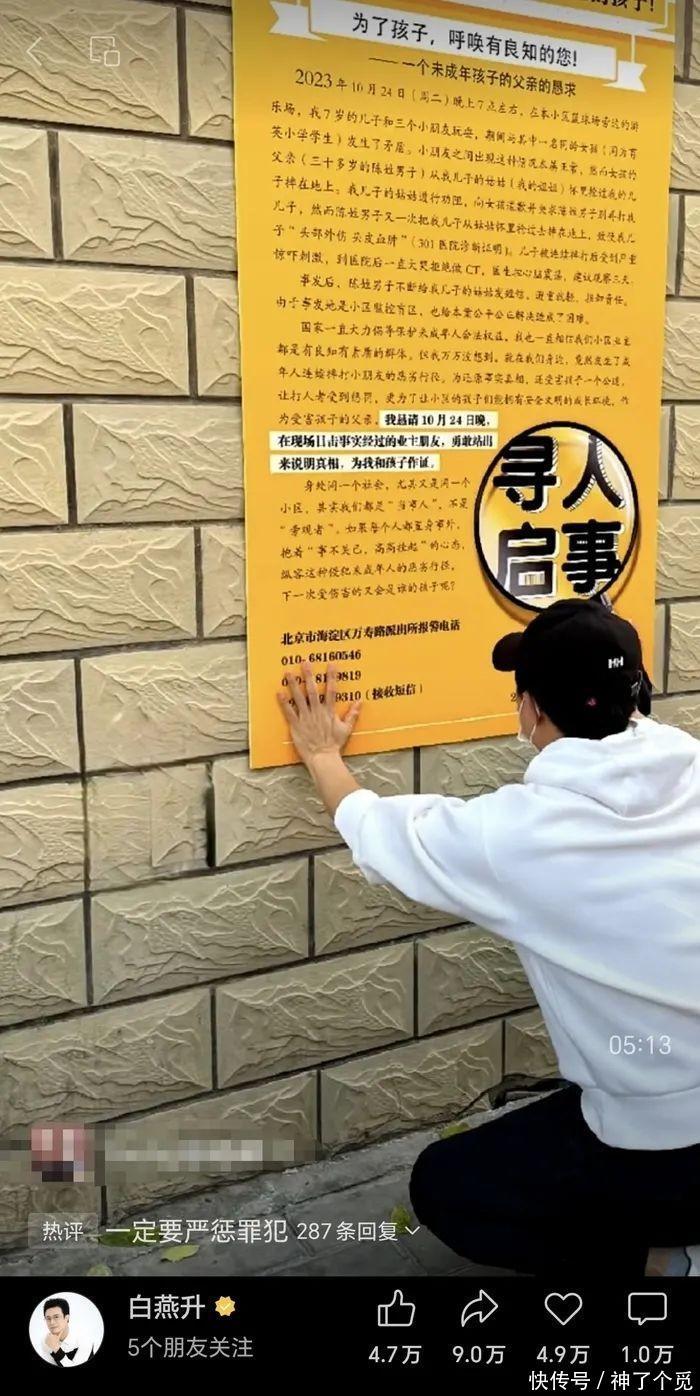 为了孩子，呼唤有良知的您！
——一个未成年孩子的父亲的恳求
2023年10月24日（周二）晚上7点左右，在本小区篮球场旁边的游
乐场，我7岁的儿子和三个小朋友玩耍，期间与其中一名同龄女孩（同为育
英小学学生）发生了矛盾。小朋友之间出现这种情况本属正常，然而女孩的
父亲（三十多岁的陈姓男子）从我儿子的姑姑（我的姐姐）怀里抢过我的儿
子摔在地上。我儿子的姑姑进行劝阻，向女孩道歉并央求陈姓男子别再打我
儿子，然而陈姓男子又一次把我儿子从姑姑怀里抢过去摔在地上，致使我儿
子“头部外伤 头皮血肿”（301医院诊断证明）。儿子被连续摔打后受到严重
惊吓刺激，到医院后一直大哭拒绝做CT，医生担心脑震荡，建议观察三天。
事发后，陈姓男子不断给我儿子的姑姑发短信，避重就轻，推卸责任。
由于事发地是小区监控盲区，也给本案公平公正解决造成了困难。
国家一直大力倡导保护未成年人合法权益，我也一直相信我们小区业主
都是有良知有素质的群体。但我万万没想到，就在我们身边，竟然发生了成
年人连续摔打小朋友的恶劣行径。为还原事实真相，还受害孩子一个公道，
让打人者受到惩罚，更为了让小区的孩子们能拥有安全文明的成长环境，作
为受害孩子的父亲，我恳请10月24日晚，
在现场目击事实经过的业主朋友，勇敢站出
来说明真相，为我和孩子作证。
身处同一个社会，尤其又是同一个
小区，其实我们都是“当事人”，不是
“旁观者”。如果每个人都置身事外，
抱着“事不关己，高高挂起”的心态，
纵容这种侵犯未成年人的恶劣行径，
下一次受伤害的又会是谁的孩子呢？
寻人
启事
北京市海淀区万寿路派出所报警电话
010-68160546
9819
9310（接收短信）
HH
05:13
热评 一定要严惩罪犯 287条回复
白燕升
5个朋友关注
4.7万 9.0万 4.9万 1.0万
快传号 / 神了个觅